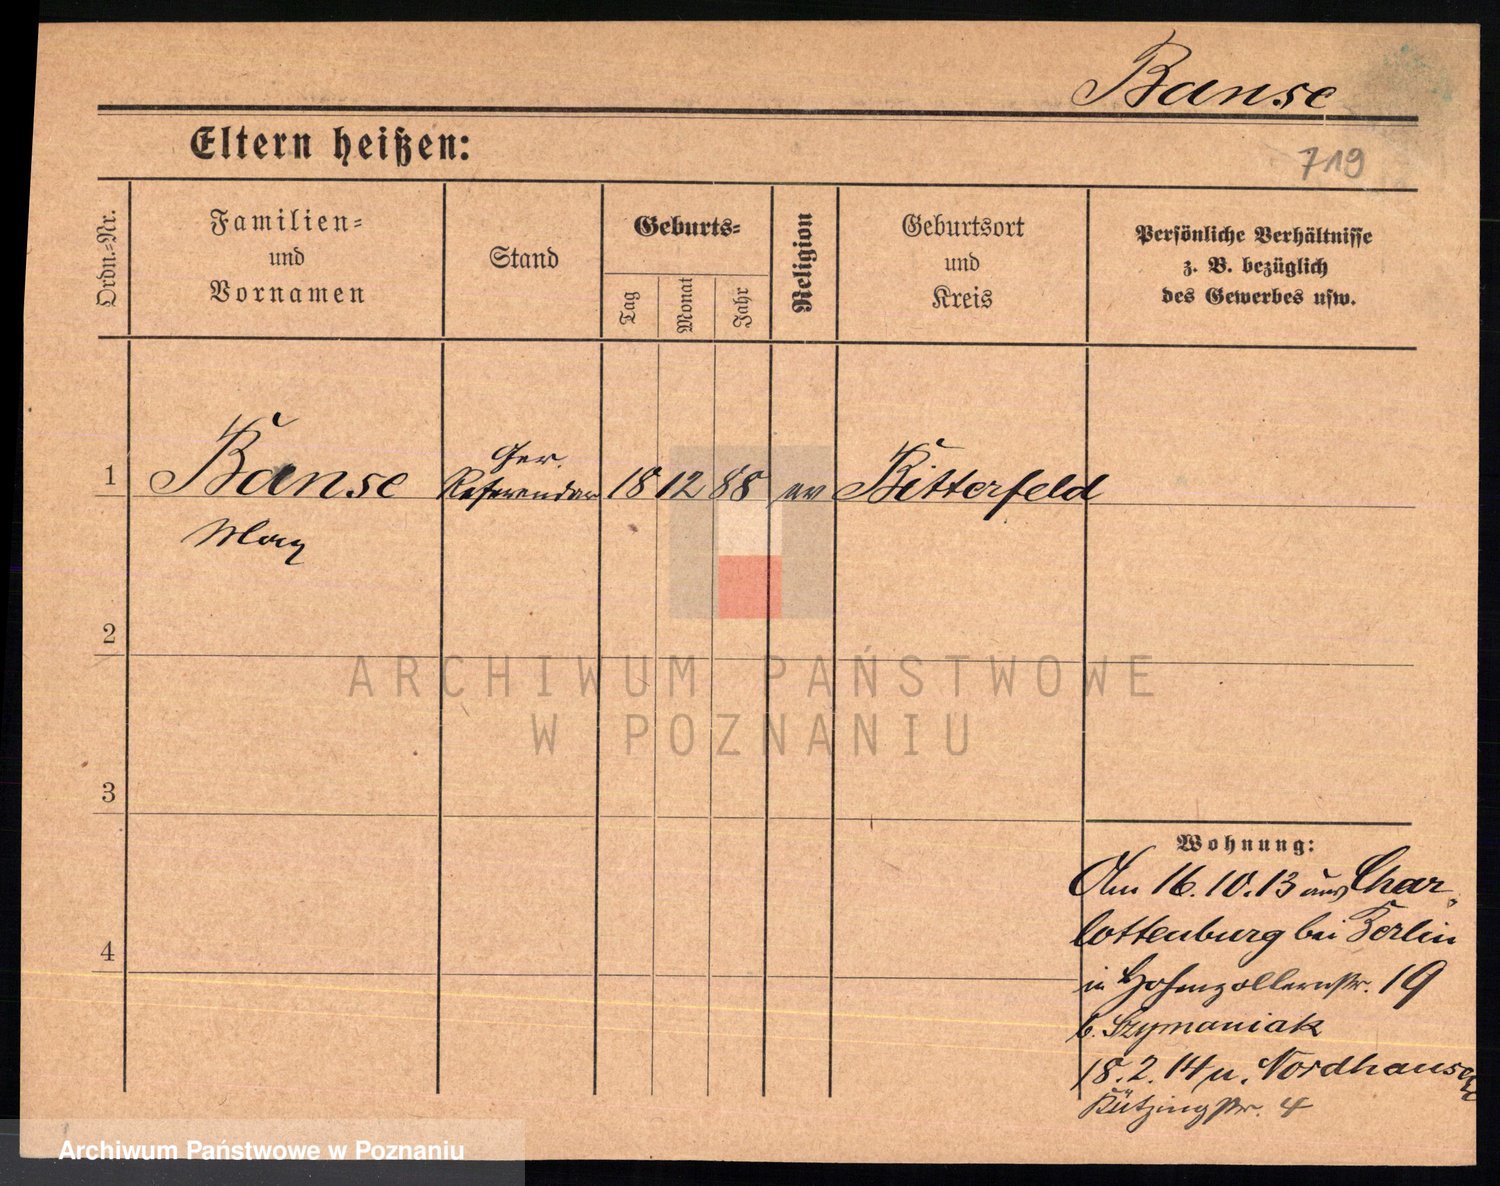 Banse
Eltern heißen:
719
Ordn.-Nr.
Familien-
und
Vornamen
Stand
Geburts-
Tag
Monat
Jahr
Religion
Geburtsort
und
Kreis
Persönliche Verhältnisse
z. B. bezüglich
des Gewerbes usw.
1 Banse Ger. Referendar 18 12 88 ev Bitterfeld
Max
2
3
4
Wohnung:
Am 16.10.13 aus Char-
lottenburg bei Berlin
in Hohenzollernstr. 19
b. Szymaniak
18.2.14 n. Nordhausen
Kützingstr. 4
ARCHIWUM PAŃSTWOWE
W POZNANIU
Archiwum Państwowe w Poznaniu